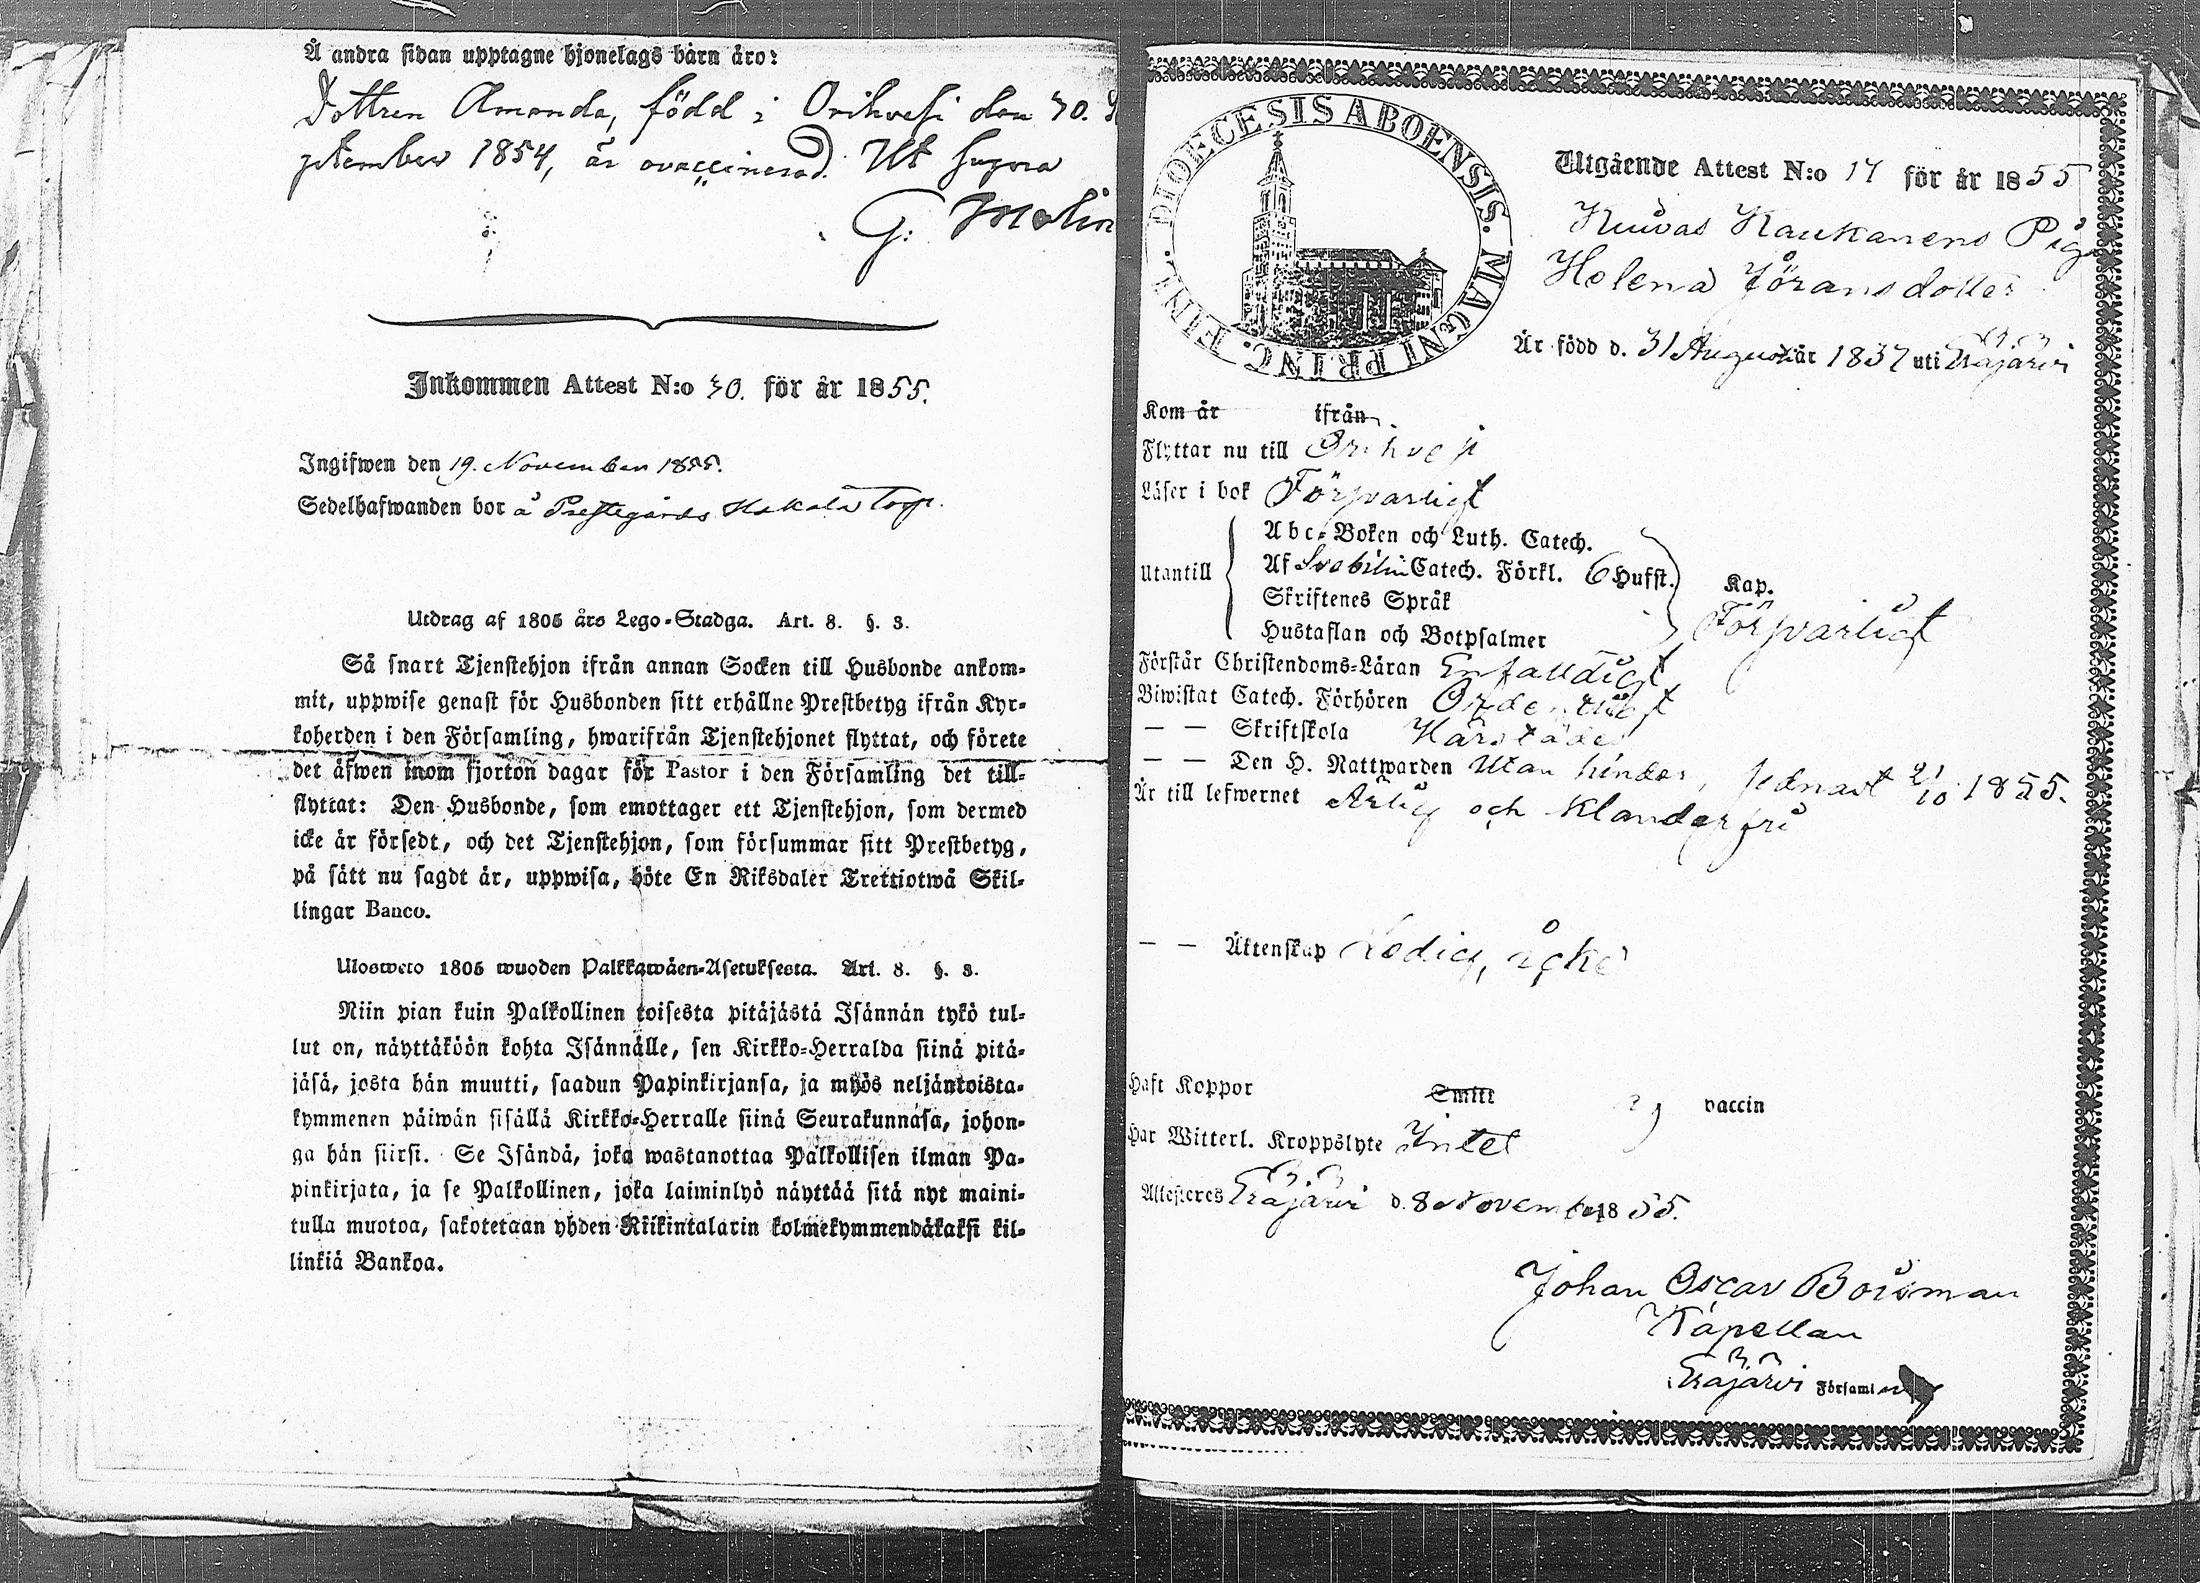 Å andra sidan upptagne hjonelags barn äro:
Dottren Amanda, född i Orihvesi den 30. Se
ptember 1854, är ovaccinerad. Ut supra
G. Molin
Inkommen Attest N:o 30. för år 1855.
Ingifwen den 19. November 1855.
Sedelhafwanden bor å Prestegårds Hakala Torp.
Utdrag af 1805 års Lego-Stadga. Art. 8. §. 3.
Så snart Tjenstehjon ifrån annan Socken till Husbonde ankom-
mit, uppwise genast för Husbonden sitt erhållne Prestbetyg ifrån Kyr-
koherden i den Församling, hwarifrån Tjenstehjonet flyttat, och förete
det äfwen inom fjorton dagar för Pastor i den Församling det till-
flyttat: Den Husbonde, som emottager ett Tjenstehjon, som dermed
icke är försedt, och det Tjenstehjon, som försummar sitt Prestbetyg,
på sätt nu sagdt är, uppwisa, böte En Riksdaler Trettiotwå Skil-
lingar Banco.
Ulosweto 1805 wuoden Palkkawäen-Asetuksesta. Art. 8. §. 3.
Niin pian kuin Palkollinen toisesta pitäjästä Isännän tykö tul-
lut on, näyttäköön kohta Isännälle, sen Kirkko-Herralda siinä pitä-
jäsä, josta hän muutti, saadun Papinkirjansa, ja myös neljäntoista-
kymmenen päiwän sisällä Kirkko-Herralle siinä Seurakunnasa, johon-
ga hän siirsi. Se Isändä, joka wastanottaa Palkollisen ilman Pa-
pinkirjata, ja se Palkollinen, joka laiminlyö näyttää sitä nyt maini-
tulla muotoa, sakotetaan yhden Riikintalarin kolmekymmendäkaksi kil-
linkiä Bankoa.
DIOECESIS ABOENSIS. MAGNI PRINC. FINL.
Utgående Attest N:o 17 för år 1855
Kuivas Kaukanens Piga
Helena Jöransdotter
Är född d. 31 August år 1837 uti Eräjärvi
Kom år ifrån
Flyttar nu till Orihvesi
Läser i bok Försvarligt
Utantill
Abc-Boken och Luth. Catech.
Af Svebilii Catech. Förkl. 6 Hufst.
Skriftenes Språk
Hustaflan och Botpsalmer
Kap.
Försvarligt
Förstår Christendoms-Läran Enfalldigt
Biwistat Catech. Förhören Ordentligt
— — Skriftskola Härstädes
— — Den H. Nattwarden Utan hinder, sednast 21/10 1855.
Är till lefwernet Ärlig och klanderfri
— — Äktenskap Ledig, äcke
Haft Koppor Smitt vaccin
Har Witterl. Kroppslyte Intet
Attesteres Eräjärvi d. 8 November 1855.
Johan Oscar Bousman
Kapellan
Eräjärvi Församl